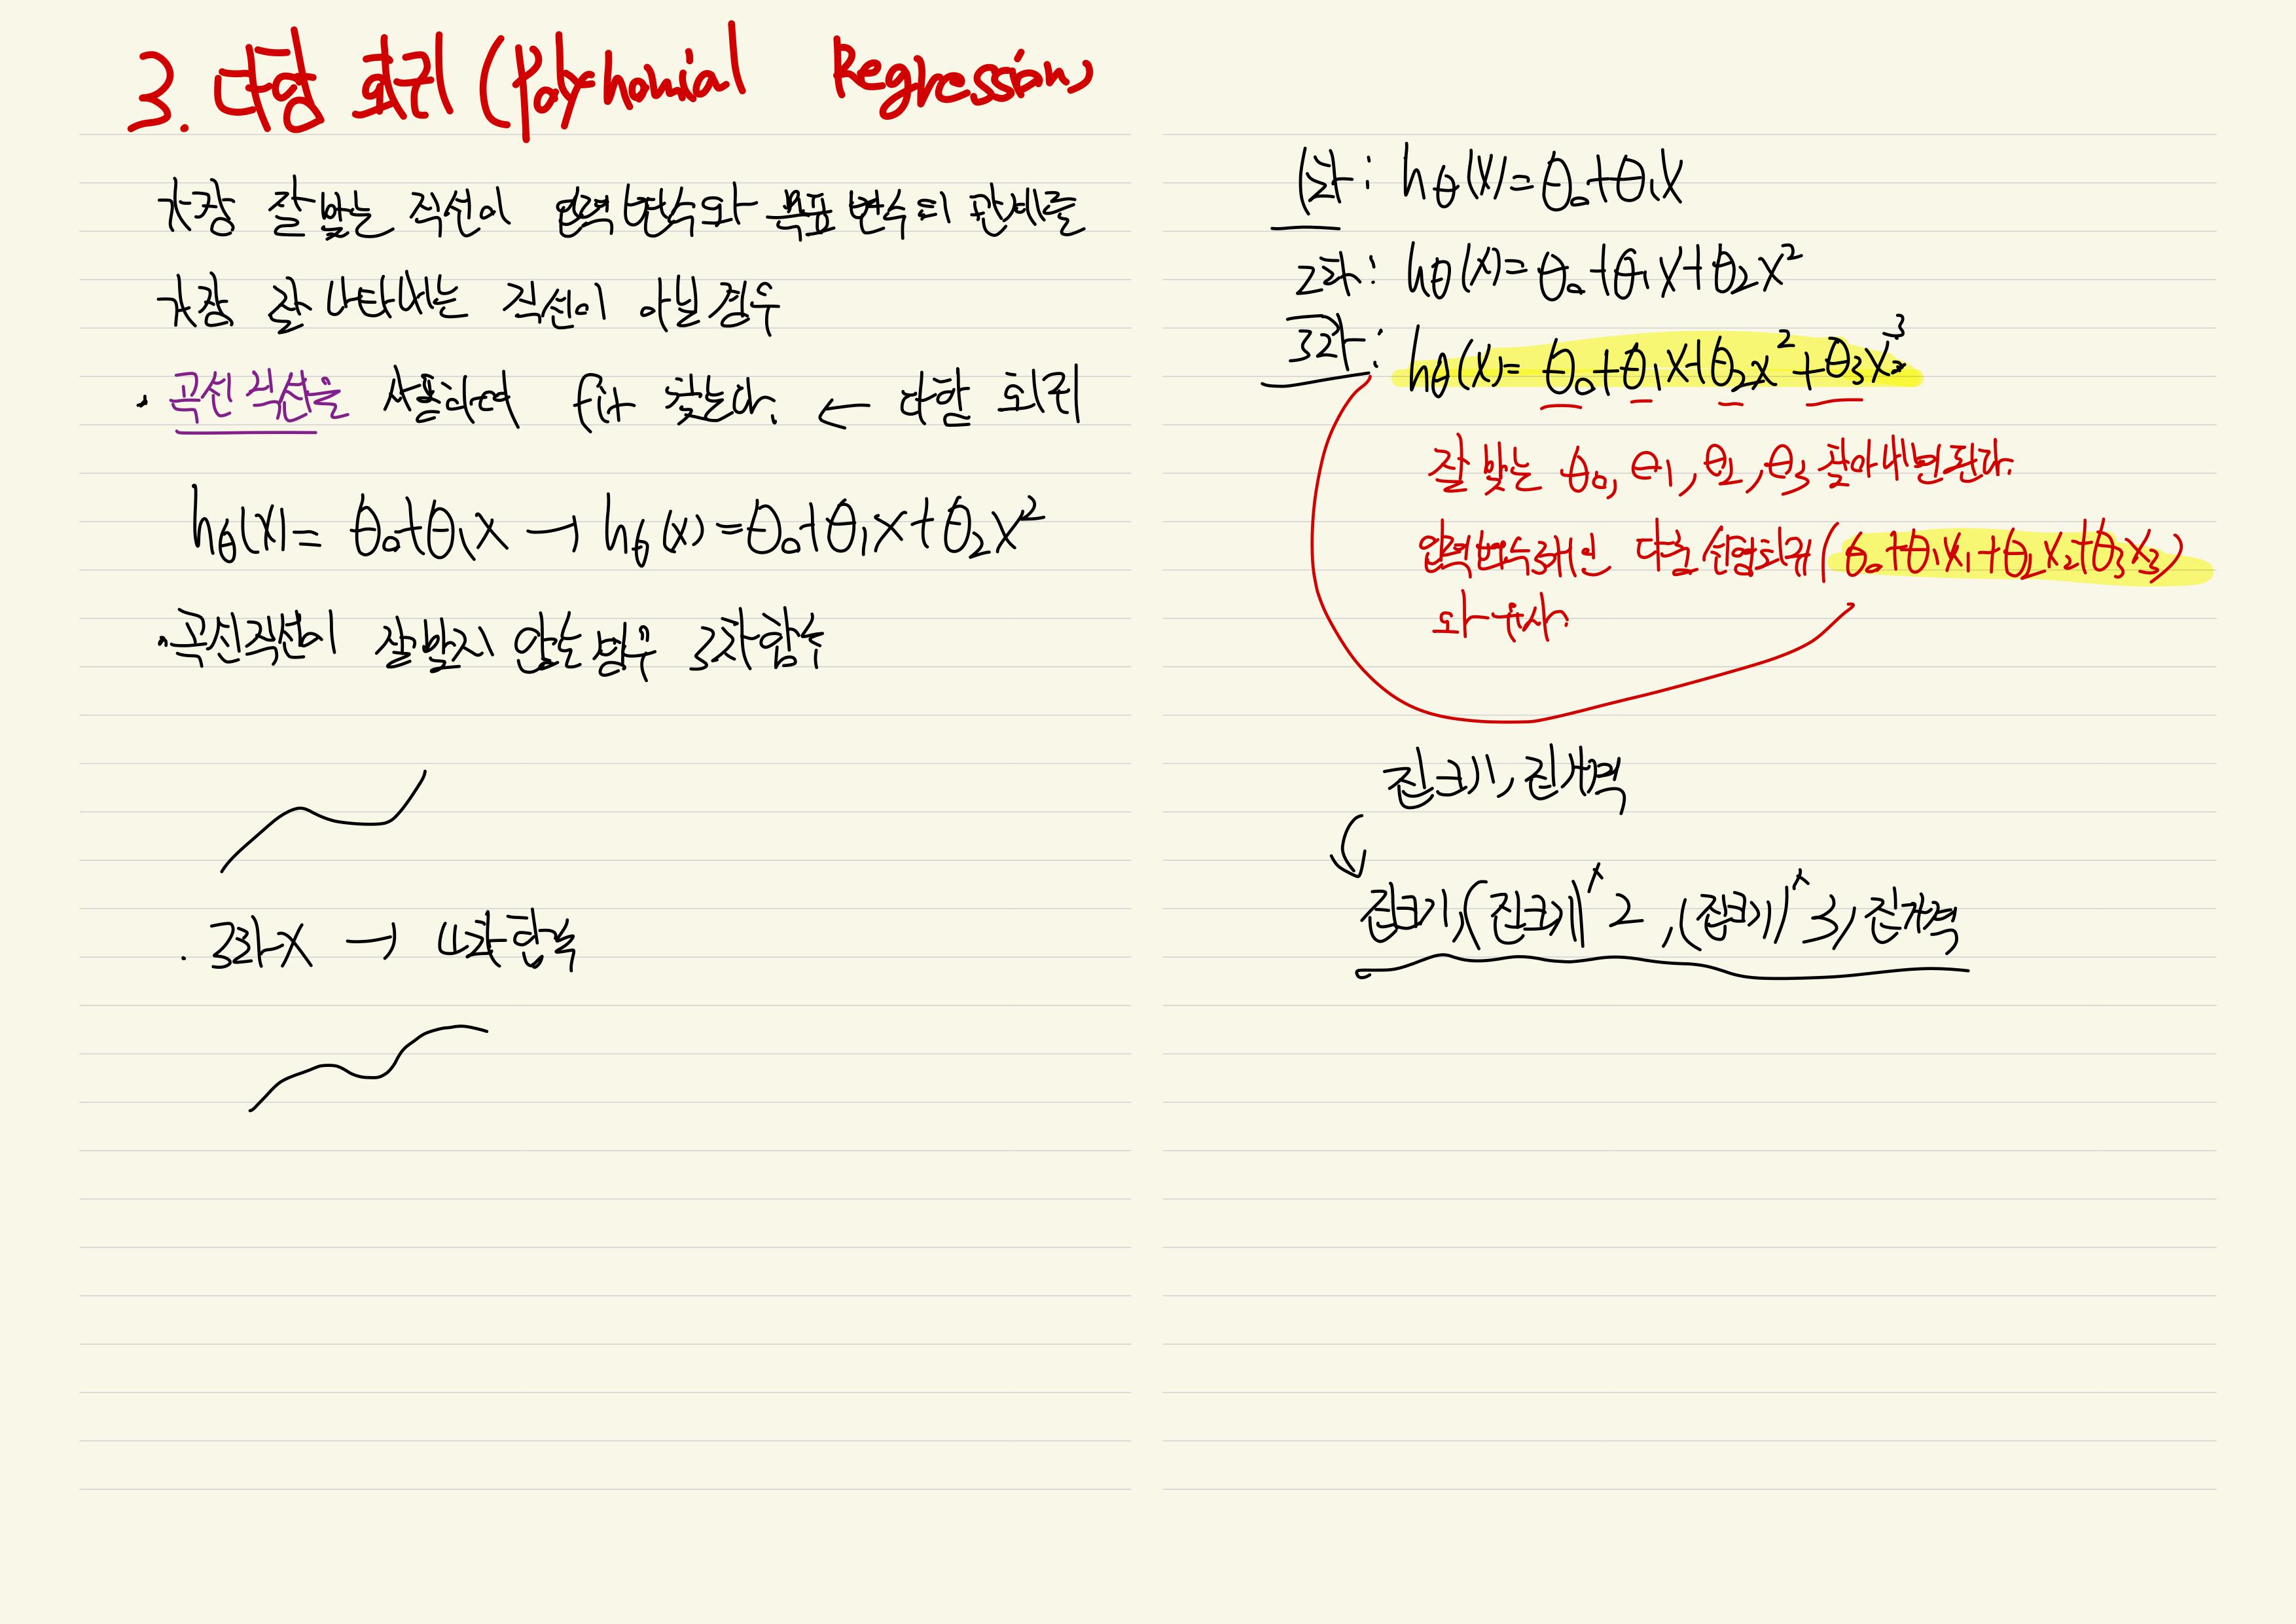 3. 다항 회귀 (Polynomial Regression)
가장 잘 맞는 직선이 입력 변수와 목표 변수의 관계를
가장 잘 나타내는 직선이 아닐 경우
· 곡선 직선을 사용하여 fit 찾는다. ← 다항 회귀
hθ(x) = θ₀+θ₁x → hθ(x) = θ₀+θ₁x+θ₂x²
· 곡선직선이 잘 맞지 않는 경우 3차함수
· 3차 x → 4차함수
1차: hθ(x) = θ₀+θ₁x
2차: hθ(x) = θ₀+θ₁x+θ₂x²
3차: hθ(x) = θ₀+θ₁x+θ₂x²+θ₃x³
잘 맞는 θ₀, θ₁, θ₂, θ₃ 찾아내면 된다.
입력변수 3개인 다중 선형회귀 (θ₀+θ₁x₁+θ₂x₂+θ₃x₃)
와 유사.
집크기, 집가격
집크기, (집크기)^2, (집크기)^3, 집가격